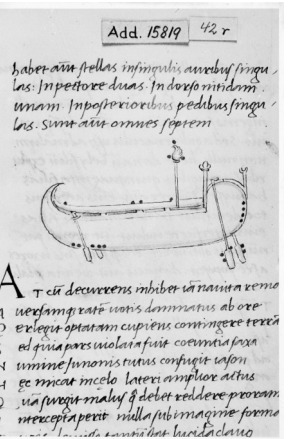 Add. 15819
42 r
habet aūt stellas in singulis auribus singu
las. In pectore duas. In dorso nitidam
unam. In posterioribus pedibus singu
las. Sunt aūt omnes septem
AT cū decurrens inhibet iā navita remo
versamq; ratē votis damnatus ab ore
erlegit optatam cupiens contingere terrā
ed quia pars violata fuit coeuntia saxa
umine Junonis tutus confugit iason
micat in celo lateri amplior actus
surgit malus debet reddere proram
intercepta perit nulla sub imagine forma
lucida clavo